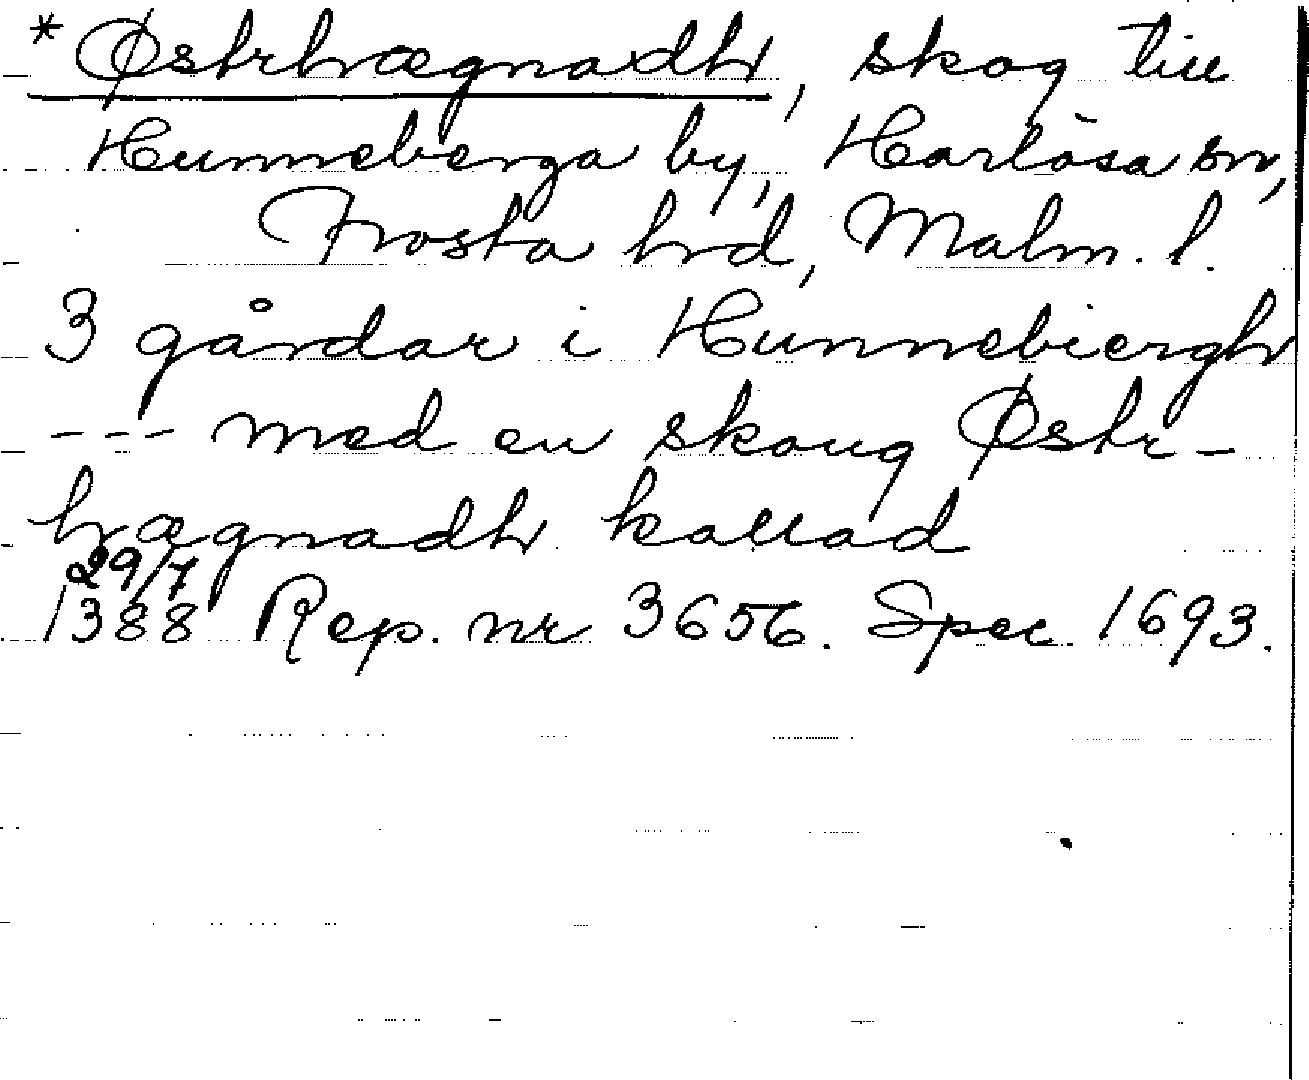 * Østrhægnadh, skog till
Hunneberga by, Harlösa sn,
Frosta hd, Malm. l.
3 gårdar i Hunnebiergh
--- med en skoug Østr-
hægnadh kallad
29/7
1388 Rep. nr 3656. Spec. 1693.